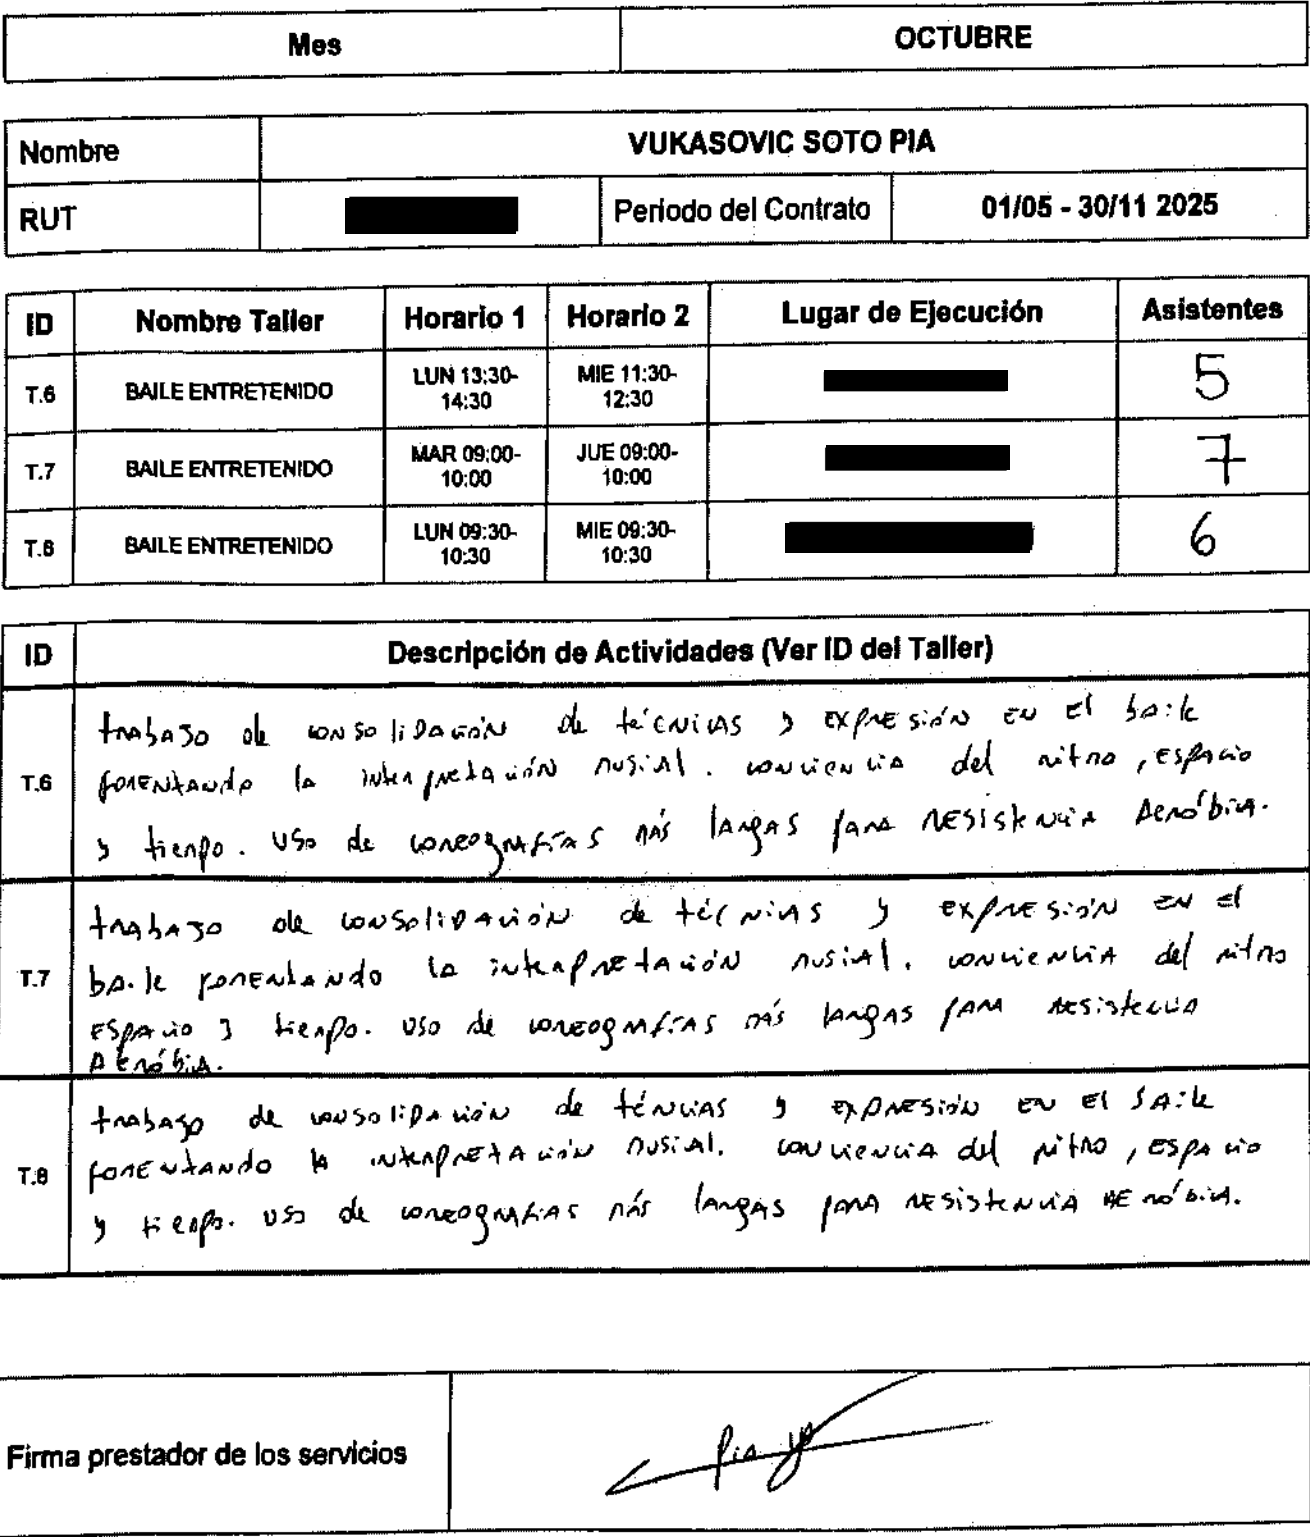 Mes OCTUBRE
Nombre VUKASOVIC SOTO PIA
RUT Periodo del Contrato 01/05 - 30/11 2025
ID Nombre Taller Horario 1 Horario 2 Lugar de Ejecución Asistentes
T.6 BAILE ENTRETENIDO LUN 13:30-14:30 MIE 11:30-12:30 5
T.7 BAILE ENTRETENIDO MAR 09:00-10:00 JUE 09:00-10:00 7
T.8 BAILE ENTRETENIDO LUN 09:30-10:30 MIE 09:30-10:30 6
ID Descripción de Actividades (Ver ID del Taller)
T.6
trabajo de consolidación de técnicas y expresión en el baile
fomentando la interpretación musical. conciencia del ritmo, espacio
y tiempo. uso de coreografías más largas para resistencia Aeróbica.
T.7
trabajo de consolidación de técnicas y expresión en el
baile fomentando la interpretación musical. conciencia del ritmo
espacio y tiempo. uso de coreografías más largas para resistencia
Aeróbica.
T.8
trabajo de consolidación de técnicas y expresión en el baile
fomentando la interpretación musical. conciencia del ritmo, espacio
y tiempo. uso de coreografías más largas para resistencia aeróbica.
Firma prestador de los servicios Pia